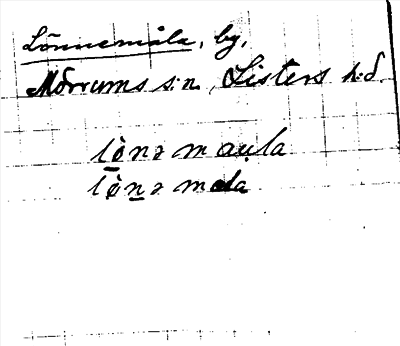 Lönnemåla, by,
Mörrums s:n, Listers h:d.
lò̱nə mau̯la
lò̱ṉə mala